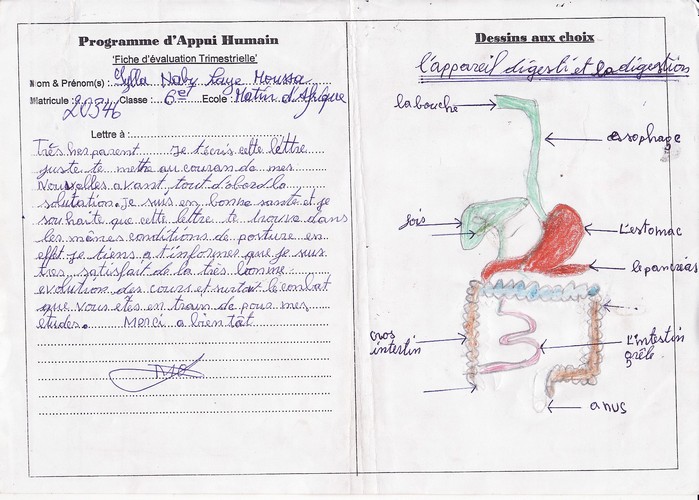 Programme d'Appui Humain
'Fiche d'évaluation Trimestrielle'
Nom & Prénom(s) : Sylla Naby Laye Moussa
Matricule : 20546 Classe : 6e Ecole : Matin d'Afrique
Lettre à :
Très cher parent Je t'écris cette lettre
juste te mettre au couran de mes
Nouvelles avant, tout d'abord la
solutation. Je suis en bonne santé et je
souhaite que cette lettre te trouve dans
les mêmes conditions de posture en
effet je tiens a t'informer que je suis
très satisfait de la très bonne
evolution des cours et surtout le combat
que vous êtes en train de pour mes
etudes. Merci a bientôt
Dessins aux choix
l'appareil digesti et la digestion
la bouche
œsophage
fois
L'estomac
le pancréas
gros
intestin
L'intestin
grêle
anus